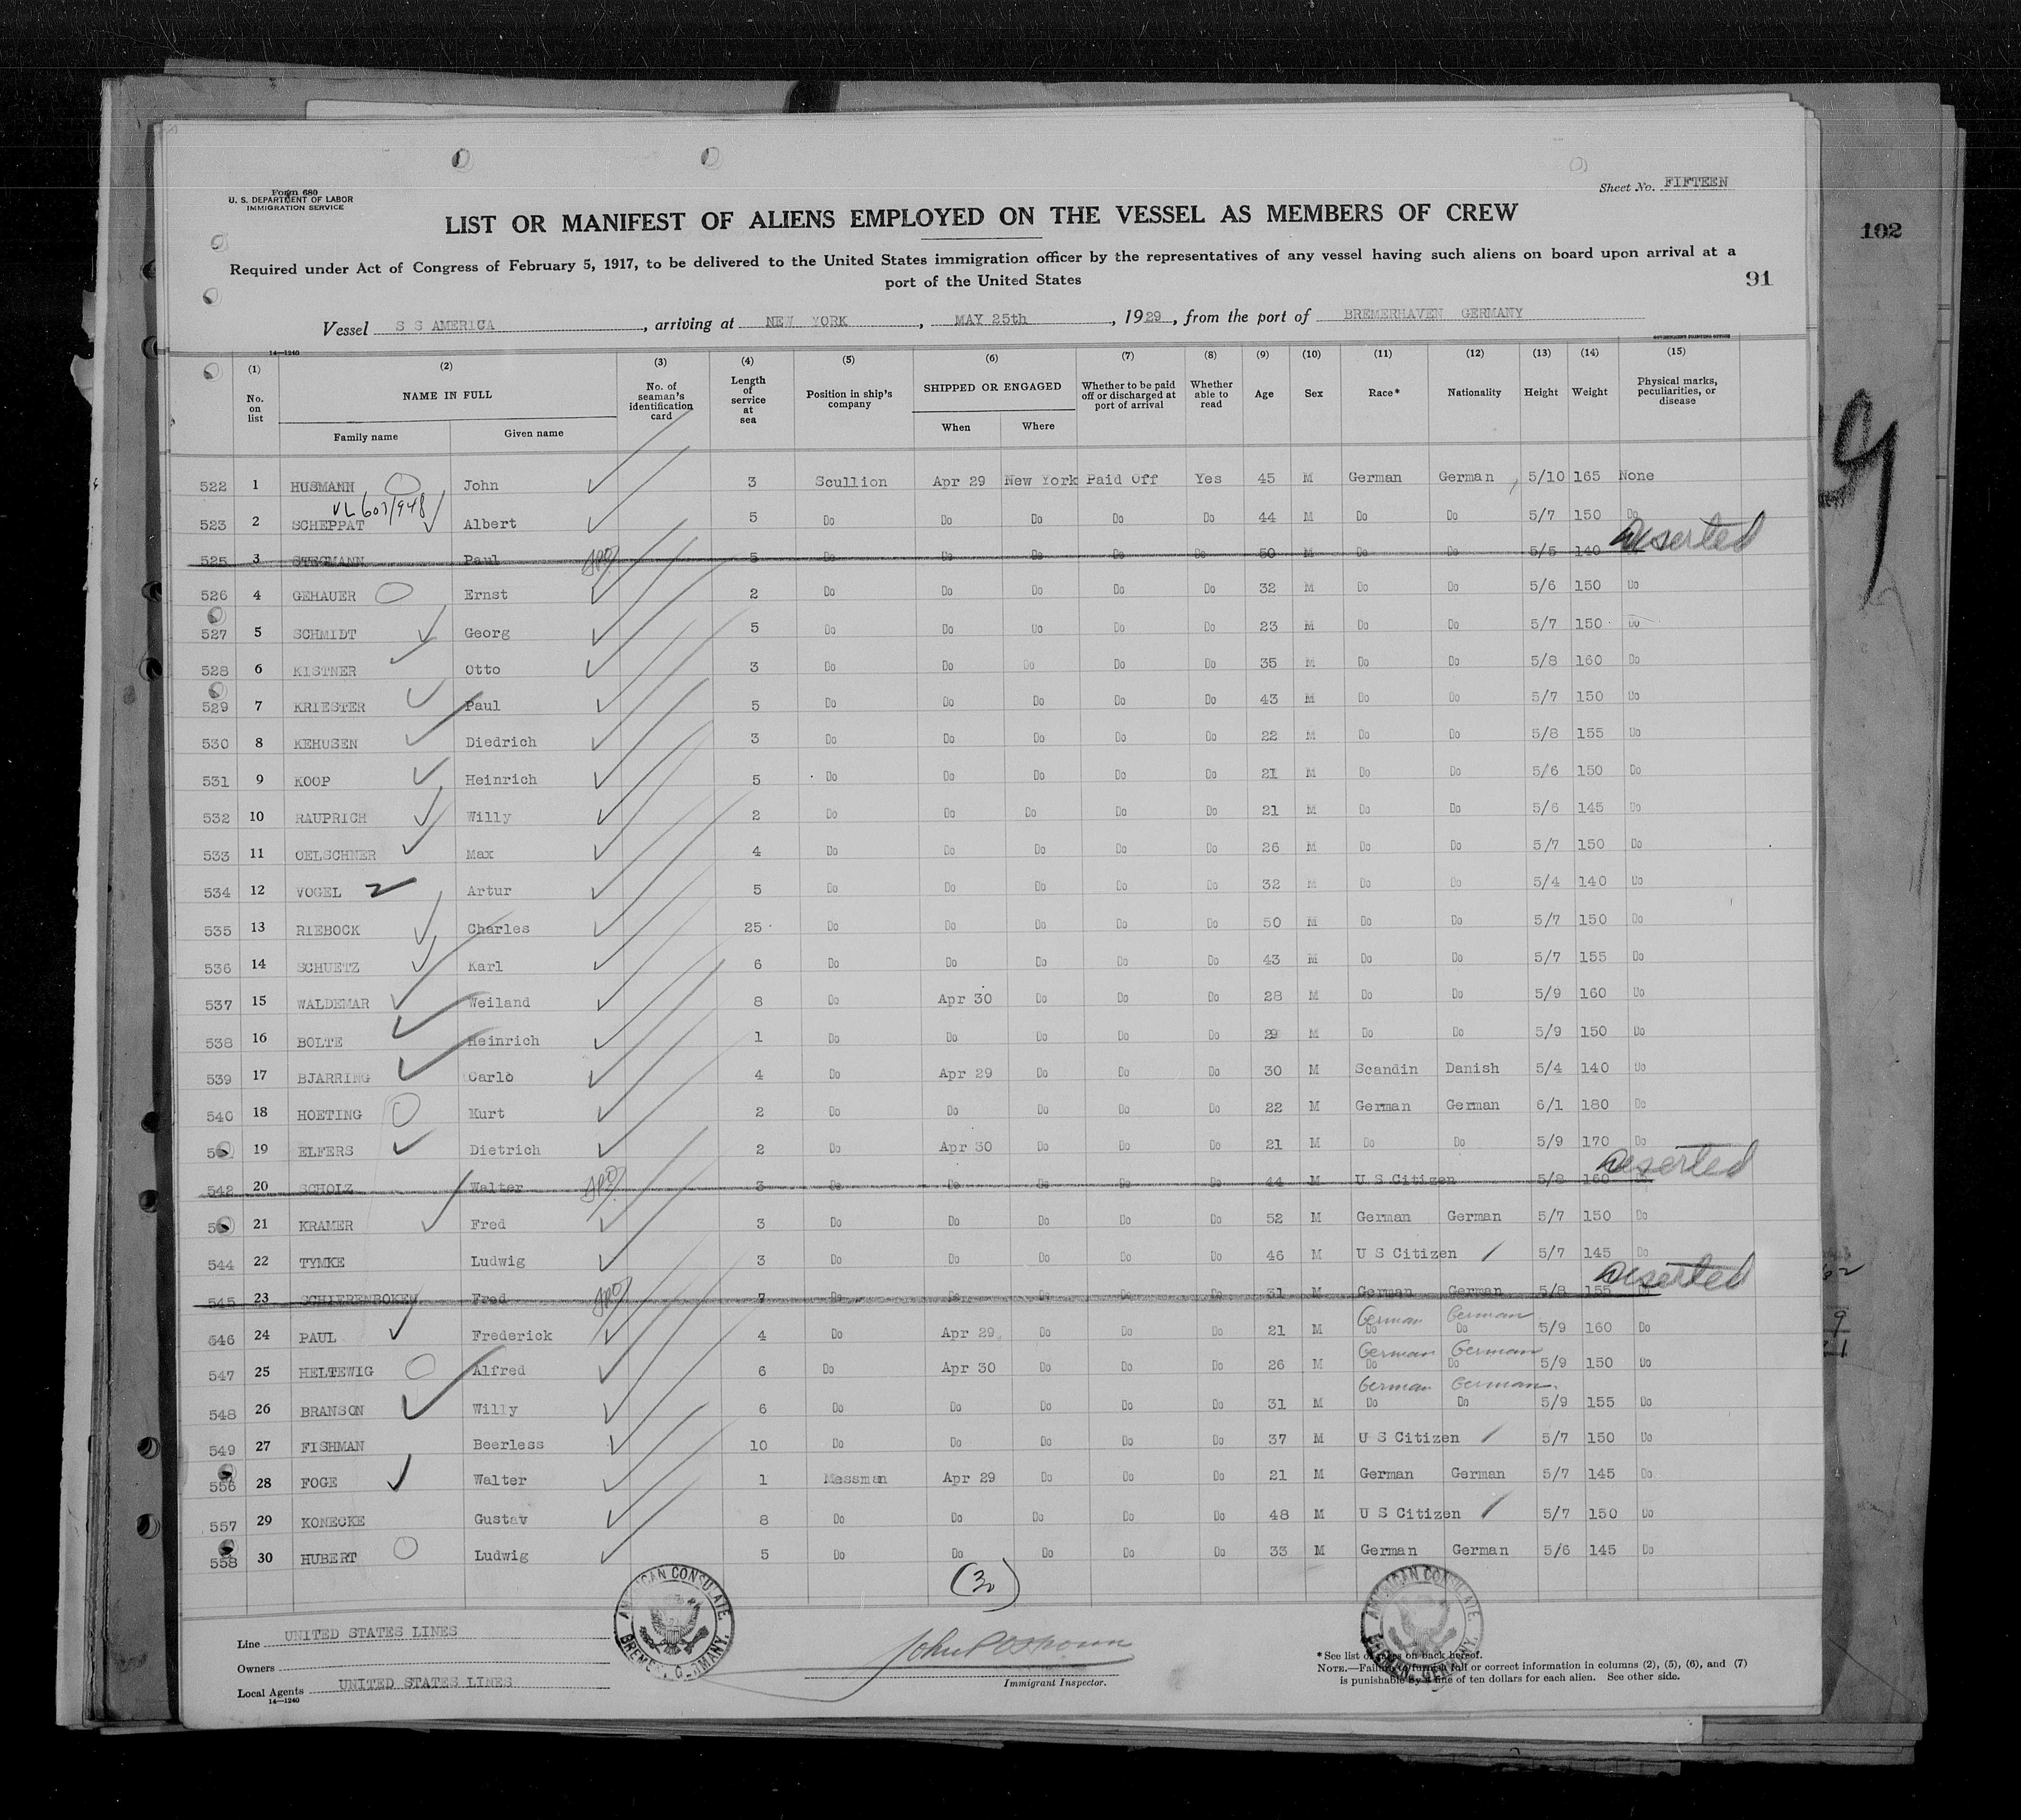 Form 680
U. S. DEPARTMENT OF LABOR
IMMIGRATION SERVICE
Sheet No. FIFTEEN
LIST OR MANIFEST OF ALIENS EMPLOYED ON THE VESSEL AS MEMBERS OF CREW
102
Required under Act of Congress of February 5, 1917, to be delivered to the United States immigration officer by the representatives of any vessel having such aliens on board upon arrival at a
port of the United States
91
Vessel S S AMERICA, arriving at NEW YORK, MAY 25th, 1929, from the port of BREMERHAVEN GERMANY
14—1240
GOVERNMENT PRINTING OFFICE
(1) (2) (3) (4) (5) (6) (7) (8) (9) (10) (11) (12) (13) (14) (15)
No. on list NAME IN FULL Family name Given name No. of seaman's identification card Length of service at sea Position in ship's company SHIPPED OR ENGAGED When Where Whether to be paid off or discharged at port of arrival Whether able to read Age Sex Race* Nationality Height Weight Physical marks, peculiarities, or disease
522 1 HUSMANN John 3 Scullion Apr 29 New York Paid Off Yes 45 M German German 5/10 165 None
VL 607/948
523 2 SCHEPPAT Albert 5 Do Do Do Do Do 44 M Do Do 5/7 150 Do
525 3 STEGMANN Paul 5 Do Do Do Do Do 50 M Do Do 5/5 140 Deserted
526 4 GEHAUER Ernst 2 Do Do Do Do Do 32 M Do Do 5/6 150 Do
527 5 SCHMIDT Georg 5 Do Do Do Do Do 23 M Do Do 5/7 150 Do
528 6 KISTNER Otto 3 Do Do Do Do Do 35 M Do Do 5/8 160 Do
529 7 KRIESTER Paul 5 Do Do Do Do Do 43 M Do Do 5/7 150 Do
530 8 KEHUSEN Diedrich 3 Do Do Do Do Do 22 M Do Do 5/8 155 Do
531 9 KOOP Heinrich 5 Do Do Do Do Do 21 M Do Do 5/6 150 Do
532 10 RAUPRICH Willy 2 Do Do Do Do Do 21 M Do Do 5/6 145 Do
533 11 OELSCHNER Max 4 Do Do Do Do Do 26 M Do Do 5/7 150 Do
534 12 VOGEL Artur 5 Do Do Do Do Do 32 M Do Do 5/4 140 Do
535 13 RIEBOCK Charles 25 Do Do Do Do Do 50 M Do Do 5/7 150 Do
536 14 SCHUETZ Karl 6 Do Do Do Do Do 43 M Do Do 5/7 155 Do
537 15 WALDEMAR Weiland 8 Do Apr 30 Do Do Do 28 M Do Do 5/9 160 Do
538 16 BOLTE Heinrich 1 Do Do Do Do Do 29 M Do Do 5/9 150 Do
539 17 BJARRING Carlo 4 Do Apr 29 Do Do Do 30 M Scandin Danish 5/4 140 Do
540 18 HOETING Kurt 2 Do Do Do Do Do 22 M German German 6/1 180 Do
19 ELFERS Dietrich 2 Do Apr 30 Do Do Do 21 M Do Do 5/9 170 Do
542 20 SCHOLZ Walter 3 Do Do Do Do Do 44 M U S Citizen 5/8 160 Do Deserted
21 KRAMER Fred 3 Do Do Do Do Do 52 M German German 5/7 150 Do
544 22 TYMKE Ludwig 3 Do Do Do Do Do 46 M U S Citizen 5/7 145 Do
545 23 SCHIERENBOKEN Fred 7 Do Do Do Do Do 31 M German German 5/8 155 Do Deserted
German German
546 24 PAUL Frederick 4 Do Apr 29 Do Do Do 21 M Do Do 5/9 160 Do
German German
547 25 HELTEWIG Alfred 6 Do Apr 30 Do Do Do 26 M Do Do 5/9 150 Do
German German
548 26 BRANSON Willy 6 Do Do Do Do Do 31 M Do Do 5/9 155 Do
549 27 FISHMAN Beerless 10 Do Do Do Do Do 37 M U S Citizen 5/7 150 Do
556 28 FOGE Walter 1 Messman Apr 29 Do Do Do 21 M German German 5/7 145 Do
557 29 KONECKE Gustav 8 Do Do Do Do Do 48 M U S Citizen 5/7 150 Do
558 30 HUBERT Ludwig 5 Do Do Do Do Do 33 M German German 5/6 145 Do
(30)
AMERICAN CONSULATE BREMEN, GERMANY.
AMERICAN CONSULATE BREMEN, GERMANY.
Line UNITED STATES LINES
Owners
Local Agents UNITED STATES LINES
14—1240
Immigrant Inspector.
*See list of races on back hereof.
NOTE.—Failure to furnish full or correct information in columns (2), (5), (6), and (7)
is punishable by a fine of ten dollars for each alien. See other side.